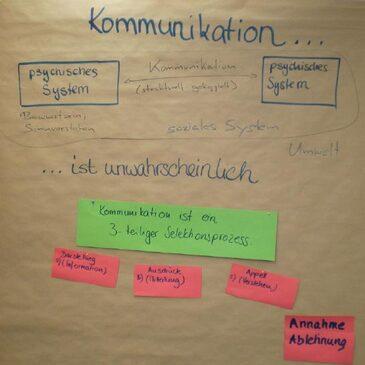 Kommunikation...
psychisches
System
Kommunikation
(strukturell gekoppelt)
psychisches
System
Bewusstsein,
Sinnverstehen
soziales System
Umwelt
...ist unwahrscheinlich
Kommunikation ist ein
3-teiliger Selektionsprozess.
Darstellung
(Information)
Ausdruck
(Mitteilung)
Appell
(Verstehen)
Annahme
Ablehnung